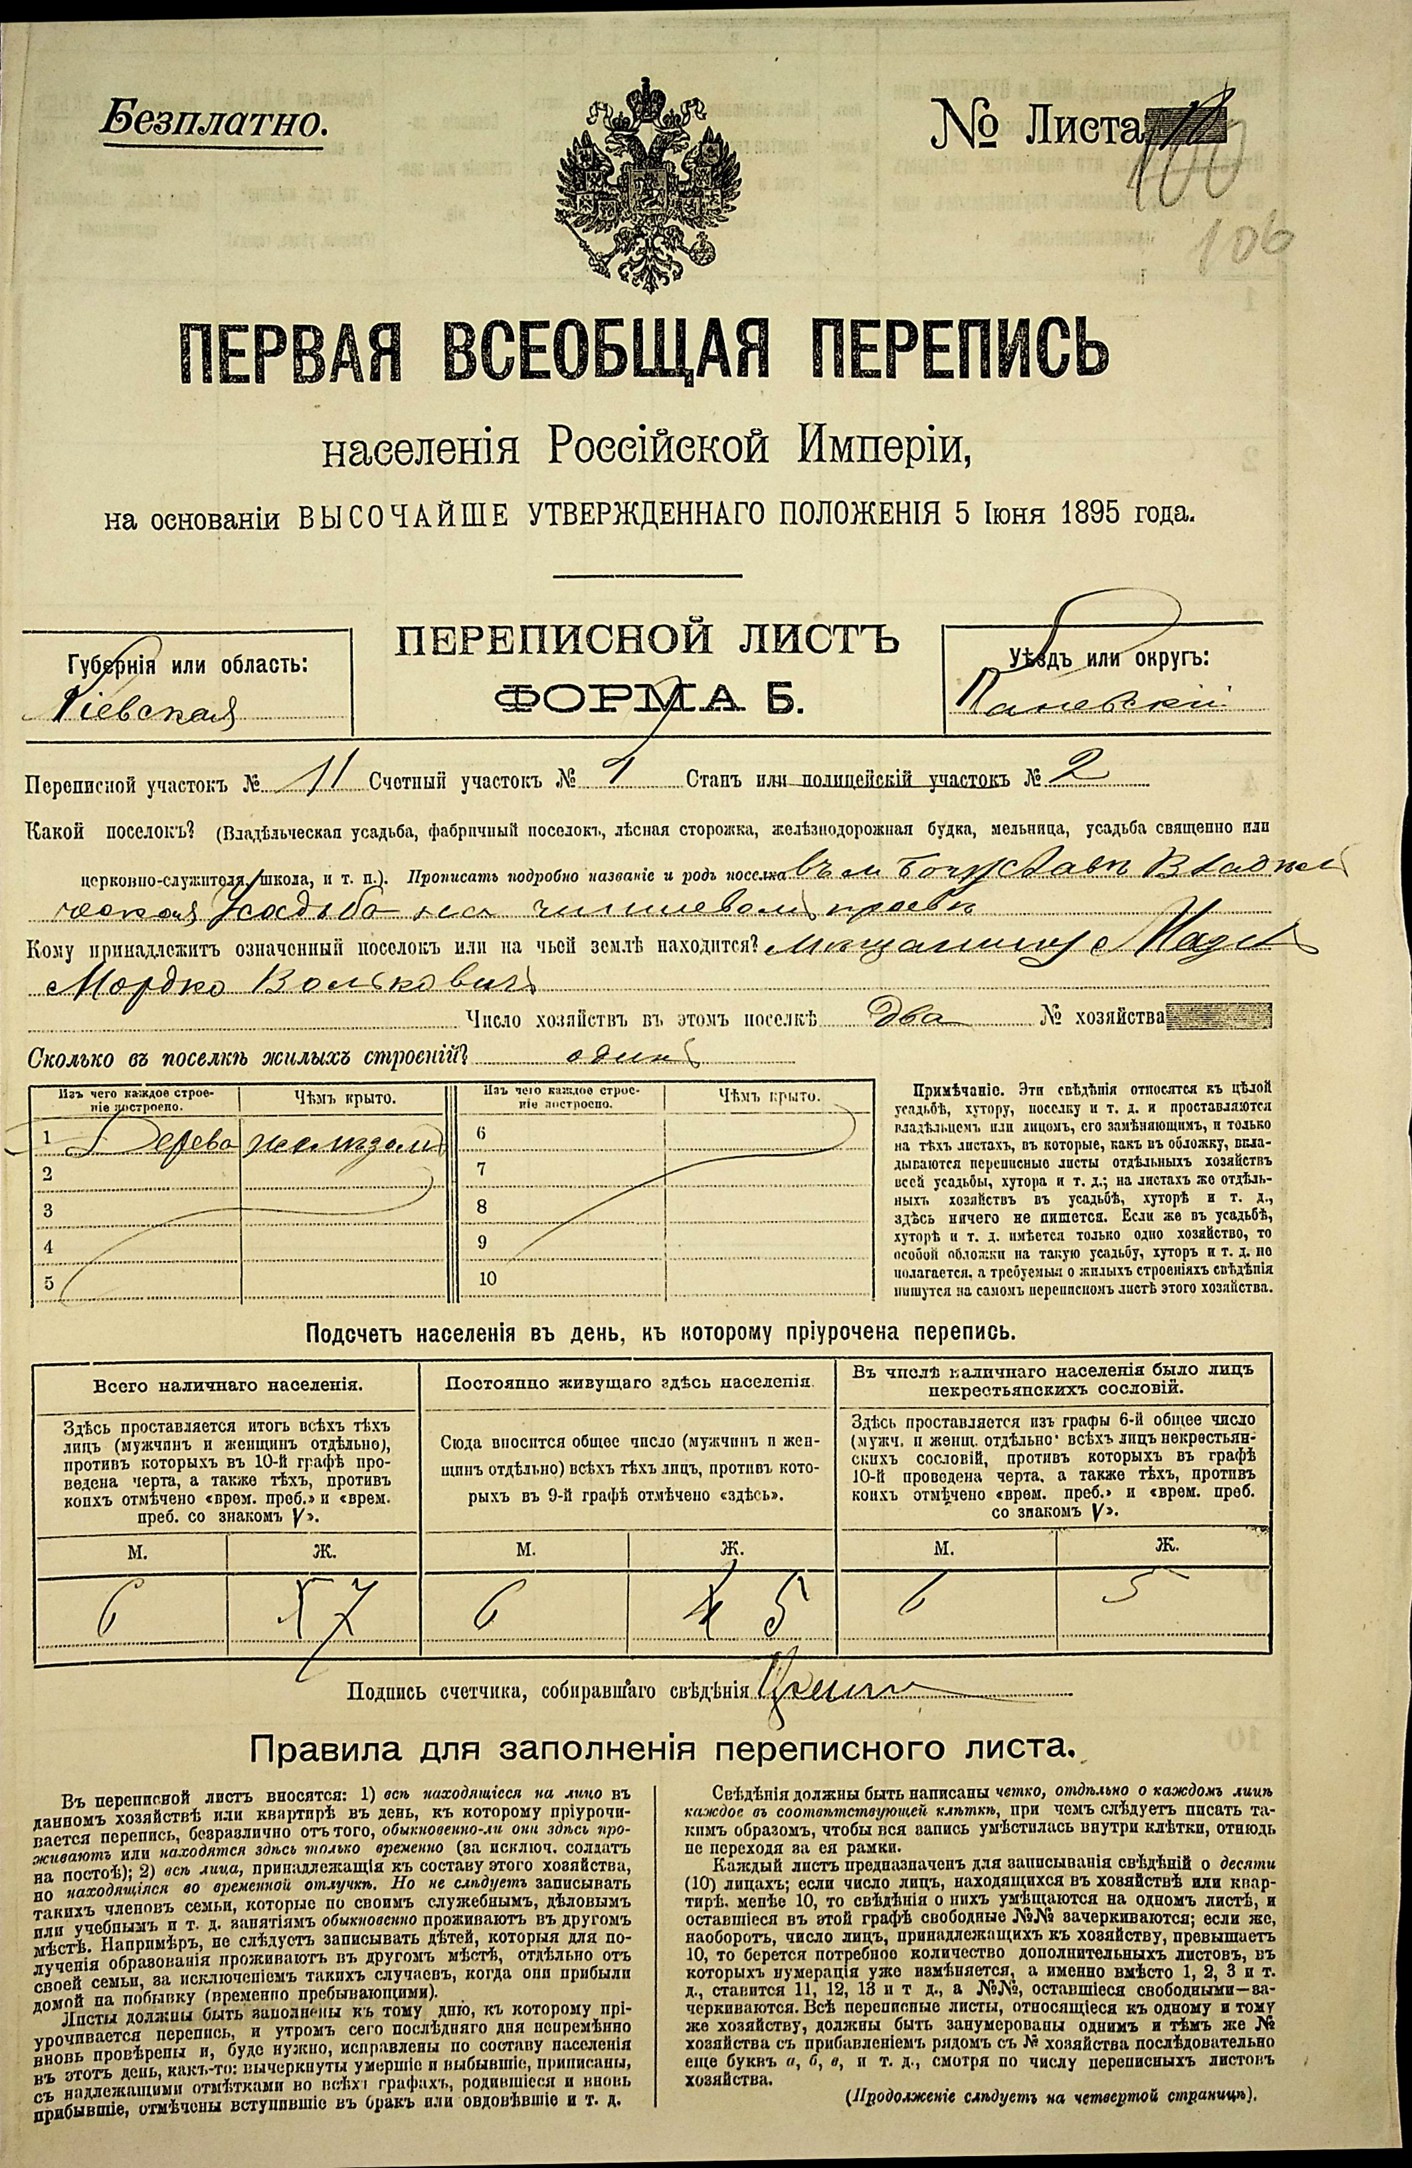 Безплатно.
№ Листа
100
106
ПЕРВАЯ ВСЕОБЩАЯ ПЕРЕПИСЬ
населенія Россійской Имперіи,
на основаніи ВЫСОЧАЙШЕ УТВЕРЖДЕННАГО ПОЛОЖЕНІЯ 5 Іюня 1895 года.
ПЕРЕПИСНОЙ ЛИСТЪ
ФОРМА Б.
Губернія или область:
Кіевская
Уѣздъ или округъ:
Каневскій
Переписной участокъ № 11 Счетный участокъ № 1 Станъ или полицейскій участокъ № 2
Какой поселокъ? (Владѣльческая усадьба, фабричный поселокъ, лѣсная сторожка, желѣзнодорожная будка, мельница, усадьба священно или
церковно-служителя, школа, и т. п.). Прописать подробно названіе и родъ поселка въ м Богуславѣ Владѣль
ческая Усадьба на
Кому принадлежитъ означенный поселокъ или на чьей землѣ находится? мѣщанину
Мордко Вольковичъ
Число хозяйствъ въ этомъ поселкѣ два № хозяйства
Сколько въ поселкѣ жилыхъ строеній? одинъ
Изъ чего каждое строе-
ніе построено. Чѣмъ крыто. Изъ чего каждое строе-
ніе построено. Чѣмъ крыто.
1 Дерева желѣзомъ 6
2 7
3 8
4 9
5 10
Примѣчаніе. Эти свѣдѣнія относятся къ цѣлой
усадьбѣ, хутору, поселку и т. д. и проставляются
владѣльцемъ или лицомъ, его замѣняющимъ, и только
на тѣхъ листахъ, въ которые, какъ въ обложку, вкла-
дываются переписные листы отдѣльныхъ хозяйствъ
всей усадьбы, хутора и т. д.; на листахъ же отдѣль-
ныхъ хозяйствъ въ усадьбѣ, хуторѣ и т. д.,
здѣсь ничего не пишется. Если же въ усадьбѣ,
хуторѣ и т. д. имѣется только одно хозяйство, то
особой обложки на такую усадьбу, хуторъ и т. д. не
полагается, а требуемыя о жилыхъ строеніяхъ свѣдѣнія
пишутся на самомъ переписномъ листѣ этого хозяйства.
Подсчетъ населенія въ день, къ которому пріурочена перепись.
Всего наличнаго населенія.
Здѣсь проставляется итогъ всѣхъ тѣхъ
лицъ (мужчинъ и женщинъ отдѣльно),
противъ которыхъ въ 10-й графѣ про-
ведена черта, а также тѣхъ, противъ
коихъ отмѣчено «врем. преб.» и «врем.
преб. со знакомъ V».
М. Ж.
6 7
Постоянно живущаго здѣсь населенія.
Сюда вносится общее число (мужчинъ и жен-
щинъ отдѣльно) всѣхъ тѣхъ лицъ, противъ кото-
рыхъ въ 9-й графѣ отмѣчено «здѣсь».
М. Ж.
6 4 5
Въ числѣ наличнаго населенія было лицъ
некрестьянскихъ сословій.
Здѣсь проставляется изъ графы 6-й общее число
(мужч. и женщ. отдѣльно) всѣхъ лицъ некрестьян-
скихъ сословій, противъ которыхъ въ графѣ
10-й проведена черта, а также тѣхъ, противъ
коихъ отмѣчено «врем. преб.» и «врем. преб.
со знакомъ V».
М. Ж.
6 5
Подпись счетчика, собиравшаго свѣдѣнія
Правила для заполненія переписного листа.
Въ переписной листъ вносятся: 1) всѣ находящіеся на лицо въ
данномъ хозяйствѣ или квартирѣ въ день, къ которому пріурочи-
вается перепись, безразлично отъ того, обыкновенно-ли они здѣсь про-
живаютъ или находятся здѣсь только временно (за исключ. солдатъ
на постоѣ); 2) всѣ лица, принадлежащія къ составу этого хозяйства,
но находящіяся во временной отлучкѣ. Но не слѣдуетъ записывать
такихъ членовъ семьи, которые по своимъ служебнымъ, дѣловымъ
или учебнымъ и т. д. занятіямъ обыкновенно проживаютъ въ другомъ
мѣстѣ. Напримѣръ, не слѣдуетъ записывать дѣтей, которыя для по-
лученія образованія проживаютъ въ другомъ мѣстѣ, отдѣльно отъ
своей семьи, за исключеніемъ такихъ случаевъ, когда они прибыли
домой на побывку (временно пребывающими).
Листы должны быть заполнены къ тому дню, къ которому прі-
урочивается перепись, и утромъ сего послѣдняго дня непремѣнно
вновь провѣрены и, буде нужно, исправлены по составу населенія
въ этотъ день, какъ-то: вычеркнуты умершіе и выбывшіе, приписаны,
съ надлежащими отмѣтками во всѣхъ графахъ, родившіеся и вновь
прибывшіе, отмѣчены вступившіе въ бракъ или овдовѣвшіе и т. д.
Свѣдѣнія должны быть написаны четко, отдѣльно о каждомъ лицѣ
каждое въ соотвѣтствующей клѣткѣ, при чемъ слѣдуетъ писать та-
кимъ образомъ, чтобы вся запись умѣстилась внутри клѣтки, отнюдь
не переходя за ея рамки.
Каждый листъ предназначенъ для записыванія свѣдѣній о десяти
(10) лицахъ; если число лицъ, находящихся въ хозяйствѣ или квар-
тирѣ, менѣе 10, то свѣдѣнія о нихъ умѣщаются на одномъ листѣ, и
оставшіеся въ этой графѣ свободные №№ зачеркиваются; если же,
наоборотъ, число лицъ, принадлежащихъ къ хозяйству, превышаетъ
10, то берется потребное количество дополнительныхъ листовъ, въ
которыхъ нумерація уже измѣняется, а именно вмѣсто 1, 2, 3 и т.
д., ставится 11, 12, 13 и т д., а №№, оставшіеся свободными—за-
черкиваются. Всѣ переписные листы, относящіеся къ одному и тому
же хозяйству, должны быть занумерованы однимъ и тѣмъ же №
хозяйства съ прибавленіемъ рядомъ съ № хозяйства послѣдовательно
еще буквъ а, б, в, и т. д., смотря по числу переписныхъ листовъ
хозяйства.
(Продолженіе слѣдуетъ на четвертой страницѣ).